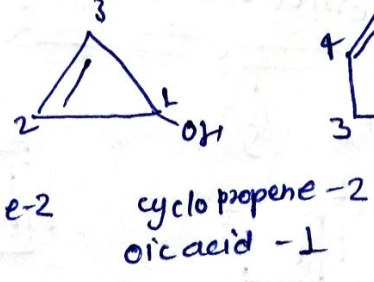 3
4
1
2
OH
3
e-2
cyclo propene-2
oic acid -1